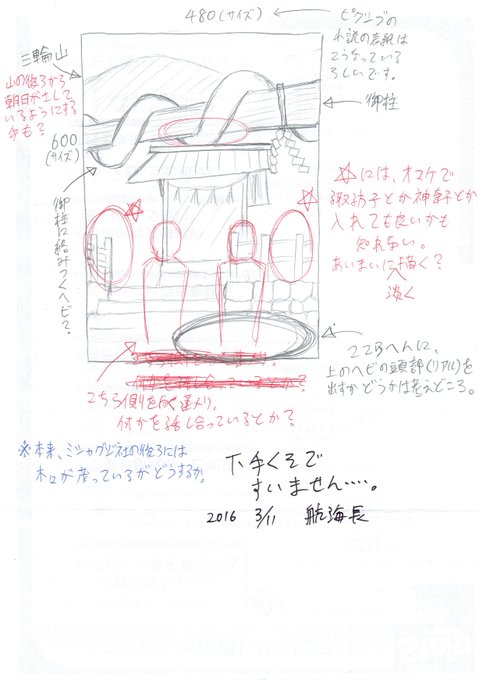 480(サイズ)
ピクシブの
小説の表紙は
こうなっている
らしいです。
三輪山
山の後ろから
朝日がさして
いるようにする
かも?
600
(サイズ)
御柱
御柱に絡みつくヘビ?
☆には、オマケで
諏訪子とか神奈子とか
入れても良いかも
知れない。
あいまいに描く?
淡く
ここらへんに、
上のヘビの頭部(リアル)を
出すかどうかは考えどころ。
こちら側を向く還入り、
何かを話し合っているとか?
※本来、ミシャグジ社の後ろには
木々が茂っているがどうするか。
下手くそで
すいません‥‥。
2016 3/11 航海長